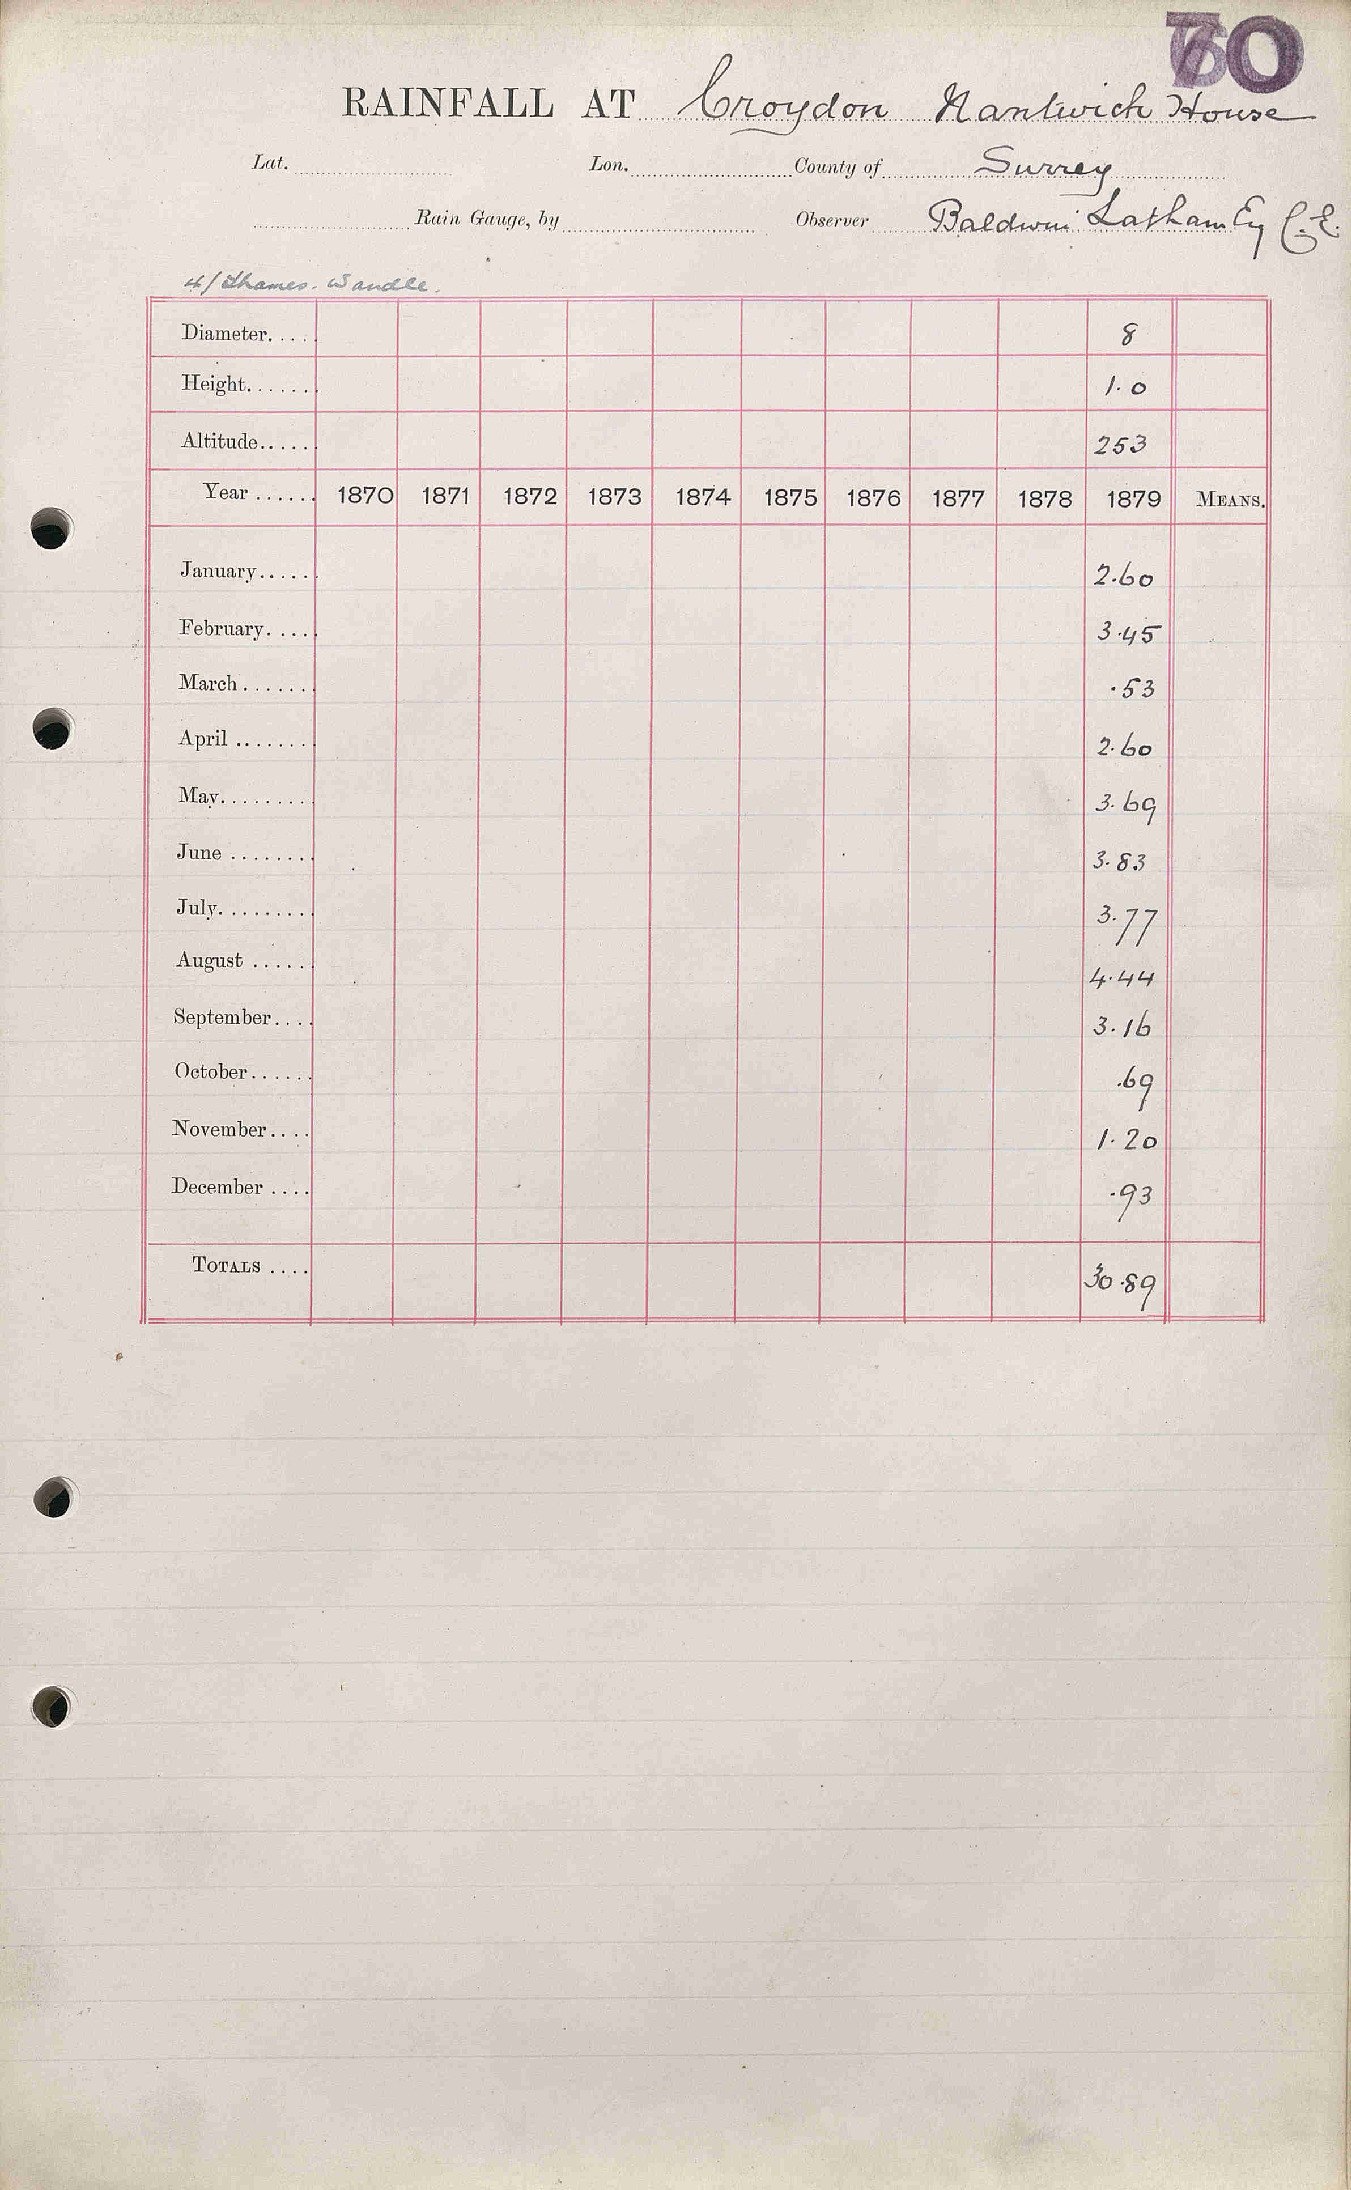 70
RAINFALL AT Croydon Nantwich House
Lat. Lon. County of Surrey
Rain Gauge, by Observer Baldwin Latham Esq C.E.
4/ Thames. Wandle.
Diameter..... 8
Height....... 1.0
Altitude...... 253
Year ...... 1870 1871 1872 1873 1874 1875 1876 1877 1878 1879 MEANS.
January...... 2.60
February..... 3.45
March....... .53
April ........ 2.60
May......... 3.69
June ........ 3.83
July......... 3.77
August ...... 4.44
September.... 3.16
October...... .69
November.... 1.20
December .... .93
TOTALS .... 30.89